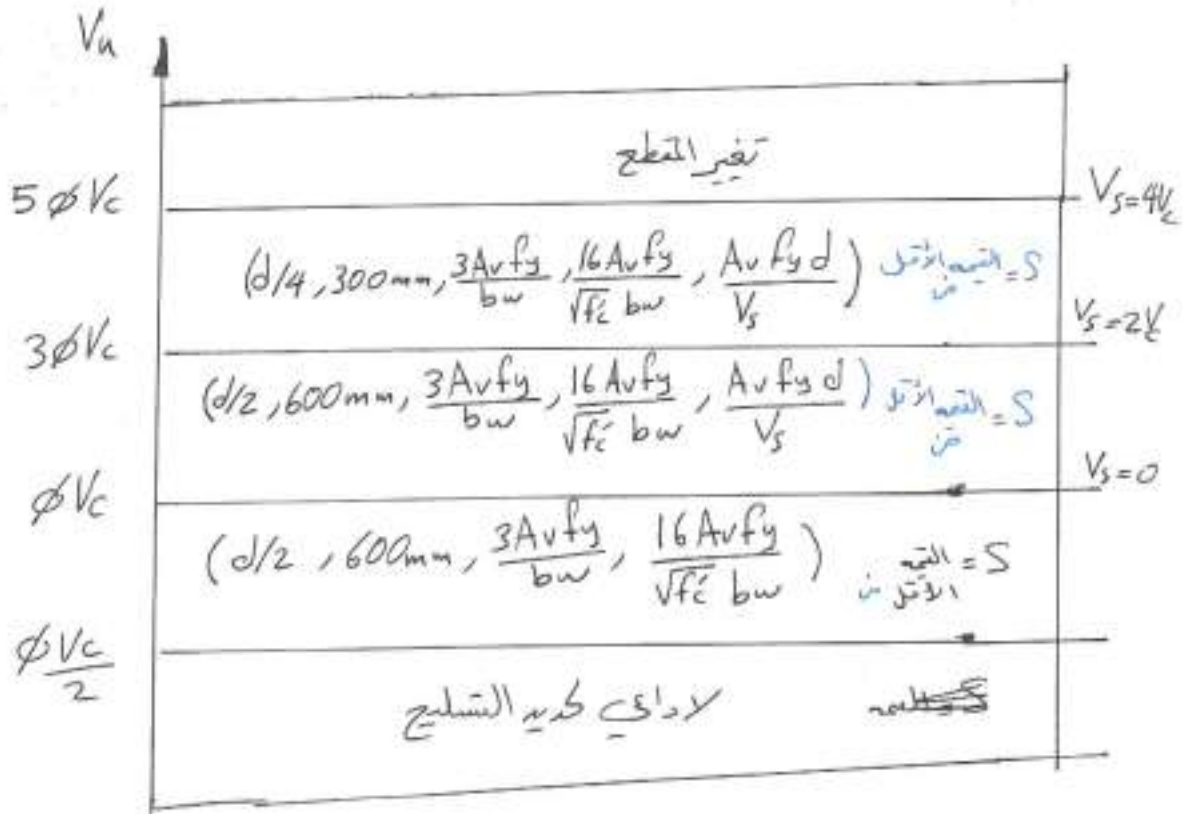 Vu
تغير المقطع
5 ϕ Vc
Vs=4Vc
(d/4 , 300mm, 3Avfy/bw , 16Avfy/√fć bw , Av fy d/Vs) S = القيمه الأقل من
3ϕVc
Vs=2Vc
(d/2 ,600mm, 3Avfy/bw , 16Avfy/√fć bw , Av fy d/Vs) S = القيمه الأقل من
ϕVc
Vs=0
(d/2 , 600mm, 3Avfy/bw , 16Avfy/√fć bw) S = القيمه الأقل من
ϕVc/2
لا داعي لحديد التسليح